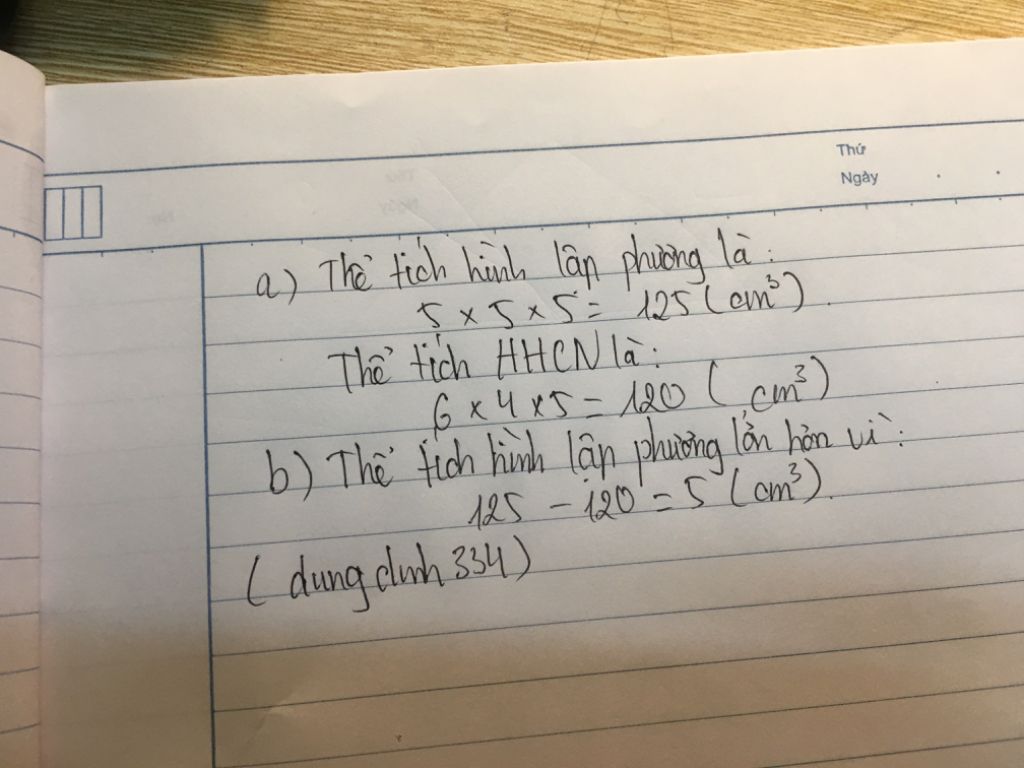 Thứ
Ngày
a) Thể tích hình lập phương là:
5 x 5 x 5 = 125 (cm³).
Thể tích HHCN là:
6 x 4 x 5 = 120 (cm³)
b) Thể tích hình lập phương lớn hơn vì:
125 - 120 = 5 (cm³).
(dungdinh334)